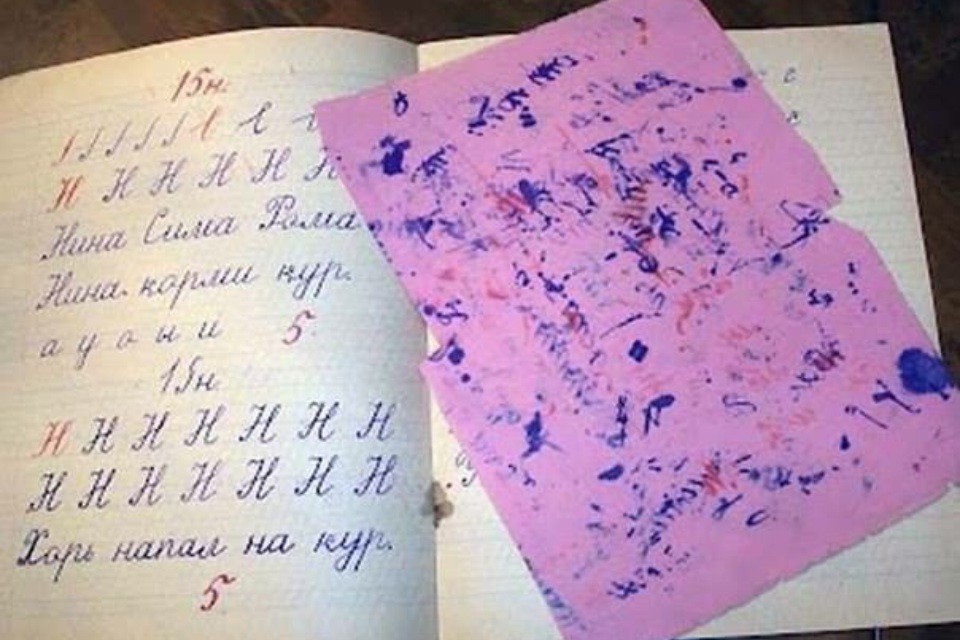 15 н.
Н Н Н Н Н Н
Нина Сима Рома
Нина корми кур.
а у о ы и 5
15 н
Н Н Н Н Н Н Н
Н Н Н Н Н Н Н
Хорь напал на кур.
5